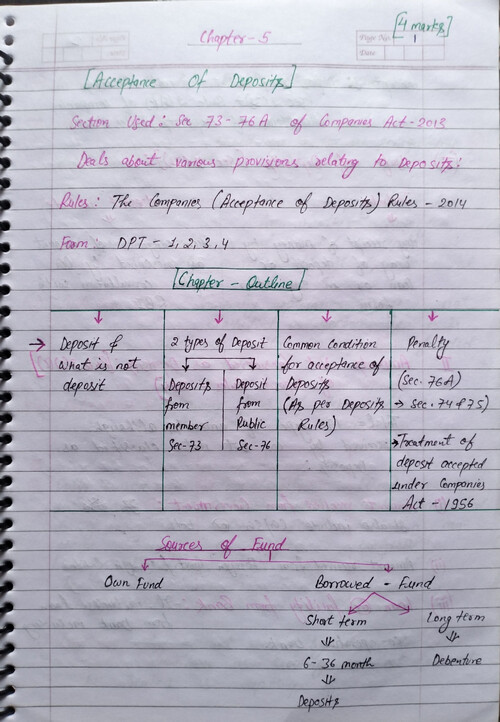 [4 marks]
Chapter-5
Page No. 1
Date
[Acceptance of Deposits]
Section Used: Sec 73-76A of Companies Act-2013
Deals about various provisions relating to Deposits:
Rules: The Companies (Acceptance of Deposits) Rules - 2014
Form: DPT - 1, 2, 3, 4
[Chapter - Outline]
→ Deposit &
what is not
deposit
2 types of Deposit
Deposits
from
member
Sec-73
Deposit
from
Public
Sec-76
Common condition
for acceptance of
Deposits
(As per Deposits
Rules)
Penalty
(Sec. 76A)
→ Sec. 74 & 75)
→ Treatment of
deposit accepted
under Companies
Act - 1956
Sources of Fund
Own Fund
Borrowed - Fund
Short term
⇓
6-36 month
⇓
Deposits
Long term
⇓
Debenture